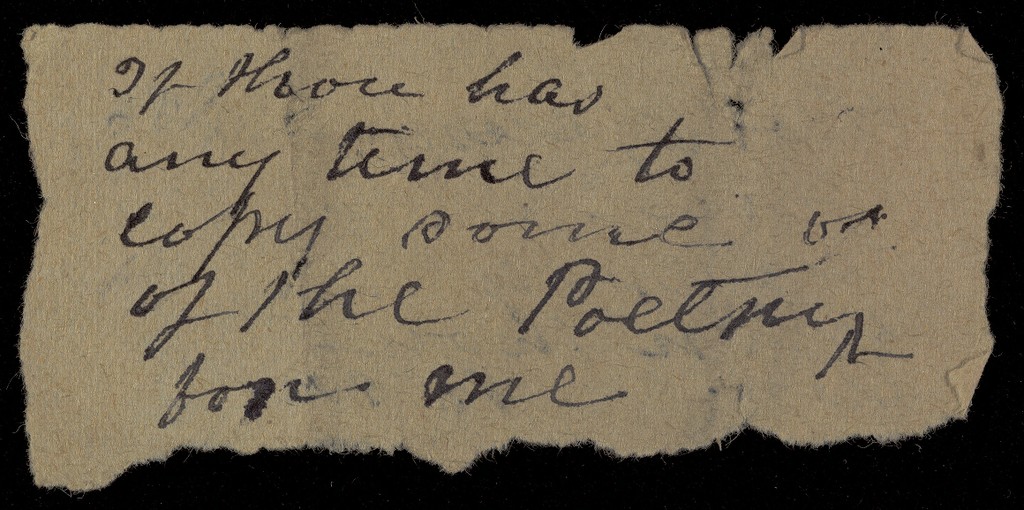 If thou has
any time to
copy some or
of the Poetry
for me